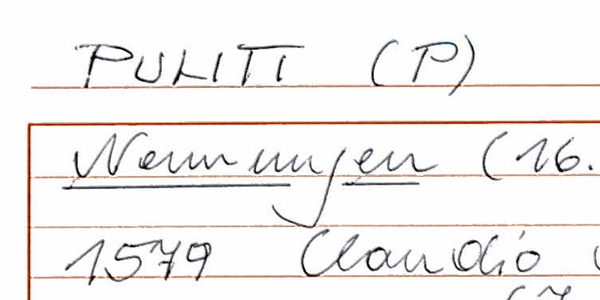 PULITI (P)
Nennungen (16.
1579 Claudio